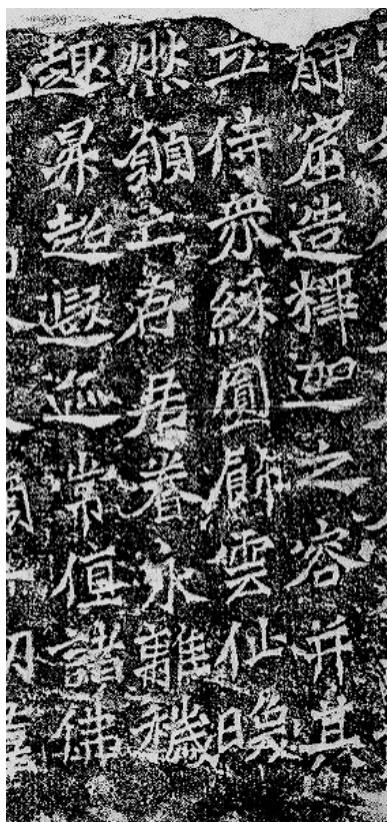 静窟造釋迦之容并其
立侍衆綵圓飾雲仙暎
然願亡者居眷永離穢
趣昇超遐迩常值諸佛